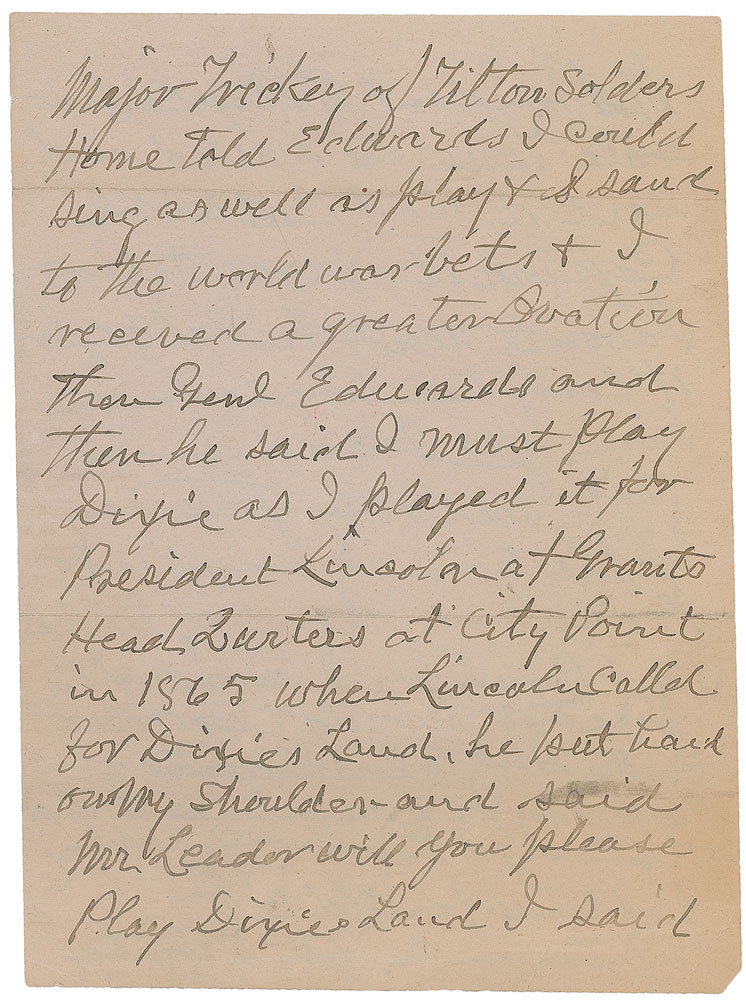 Major Trickey of Tilton Solders
Home Told Edwards I could
sing as well as play & I sand
to the world war bets & I
received a greater Ovation
then Genl Edwards and
then he said I must play
Dixie as I played it for
President Lincoln at Grants
Head Qurters at City Point
in 1865 when Lincoln Calld
for Dixies Land, he put hand
on My Shoulder and said
Mr. Leador will you please
Play Dixies Land I said